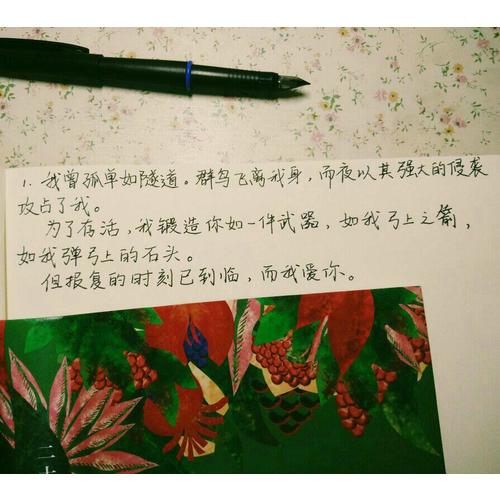 1. 我曾孤单如隧道。群鸟飞离我身，而夜以其强大的侵袭
攻占了我。
为了存活，我锻造你如一件武器，如我弓上之箭，
如我弹弓上的石头。
但报复的时刻已到临，而我爱你。
二十